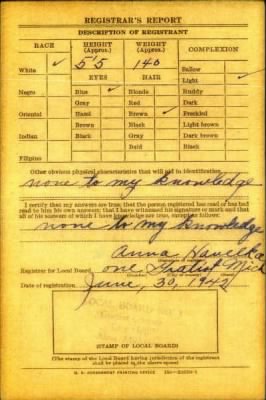 REGISTRAR'S REPORT
DESCRIPTION OF REGISTRANT
RACE HEIGHT (Approx.) WEIGHT (Approx.) COMPLEXION
White ✓ 5'5 140 Sallow
EYES HAIR Light ✓
Negro Blue ✓ Blonde Ruddy
Gray Red Dark
Oriental Hazel Brown ✓ Freckled
Brown Black Light brown
Indian Black Gray Dark brown
Bald Black
Filipino
Other obvious physical characteristics that will aid in identification
none to my knowledge
I certify that my answers are true; that the person registered has read or has had
read to him his own answers; that I have witnessed his signature or mark and that
all of his answers of which I have knowledge are true, except as follows:
none to my knowledge
Anna
Registrar for Local Board one Gratiot Mich
Date of registration June 30, 1942
(STAMP OF LOCAL BOARD)
(The stamp of the Local Board having jurisdiction of the registrant
shall be placed in the above space.)
U. S. GOVERNMENT PRINTING OFFICE